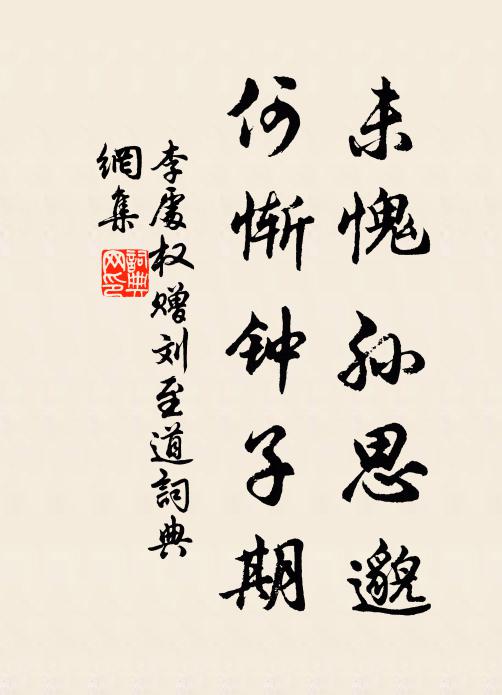 未愧孙思邈
何惭钟子期
李处权赠刘至道詞典
網集
詞典
网印